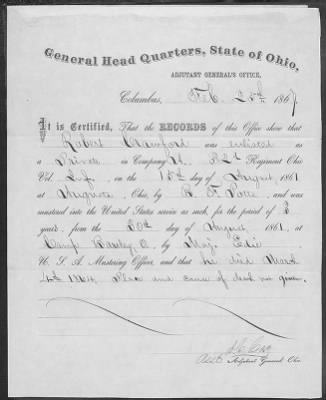 General Head Quarters, State of Ohio,
ADJUTANT GENERAL'S OFFICE,
Columbus, Feb. 25th 1867.
It is Certified, That the RECORDS of this Office show that
Robert Crawford was enlisted as
a Private in Company Regiment Ohio
Vol. Inf. on the 15th day of August, 1861
at Ohio, by R. F. and was
mustered into the United States service as such, for the period of 3
years, from the 30th day of August, 1861, at
Camp O. by Maj.
U. S. A. Mustering Officer, and that he died March
4th 1864, Place and cause of death not given.
Asst Adjutant General Ohio